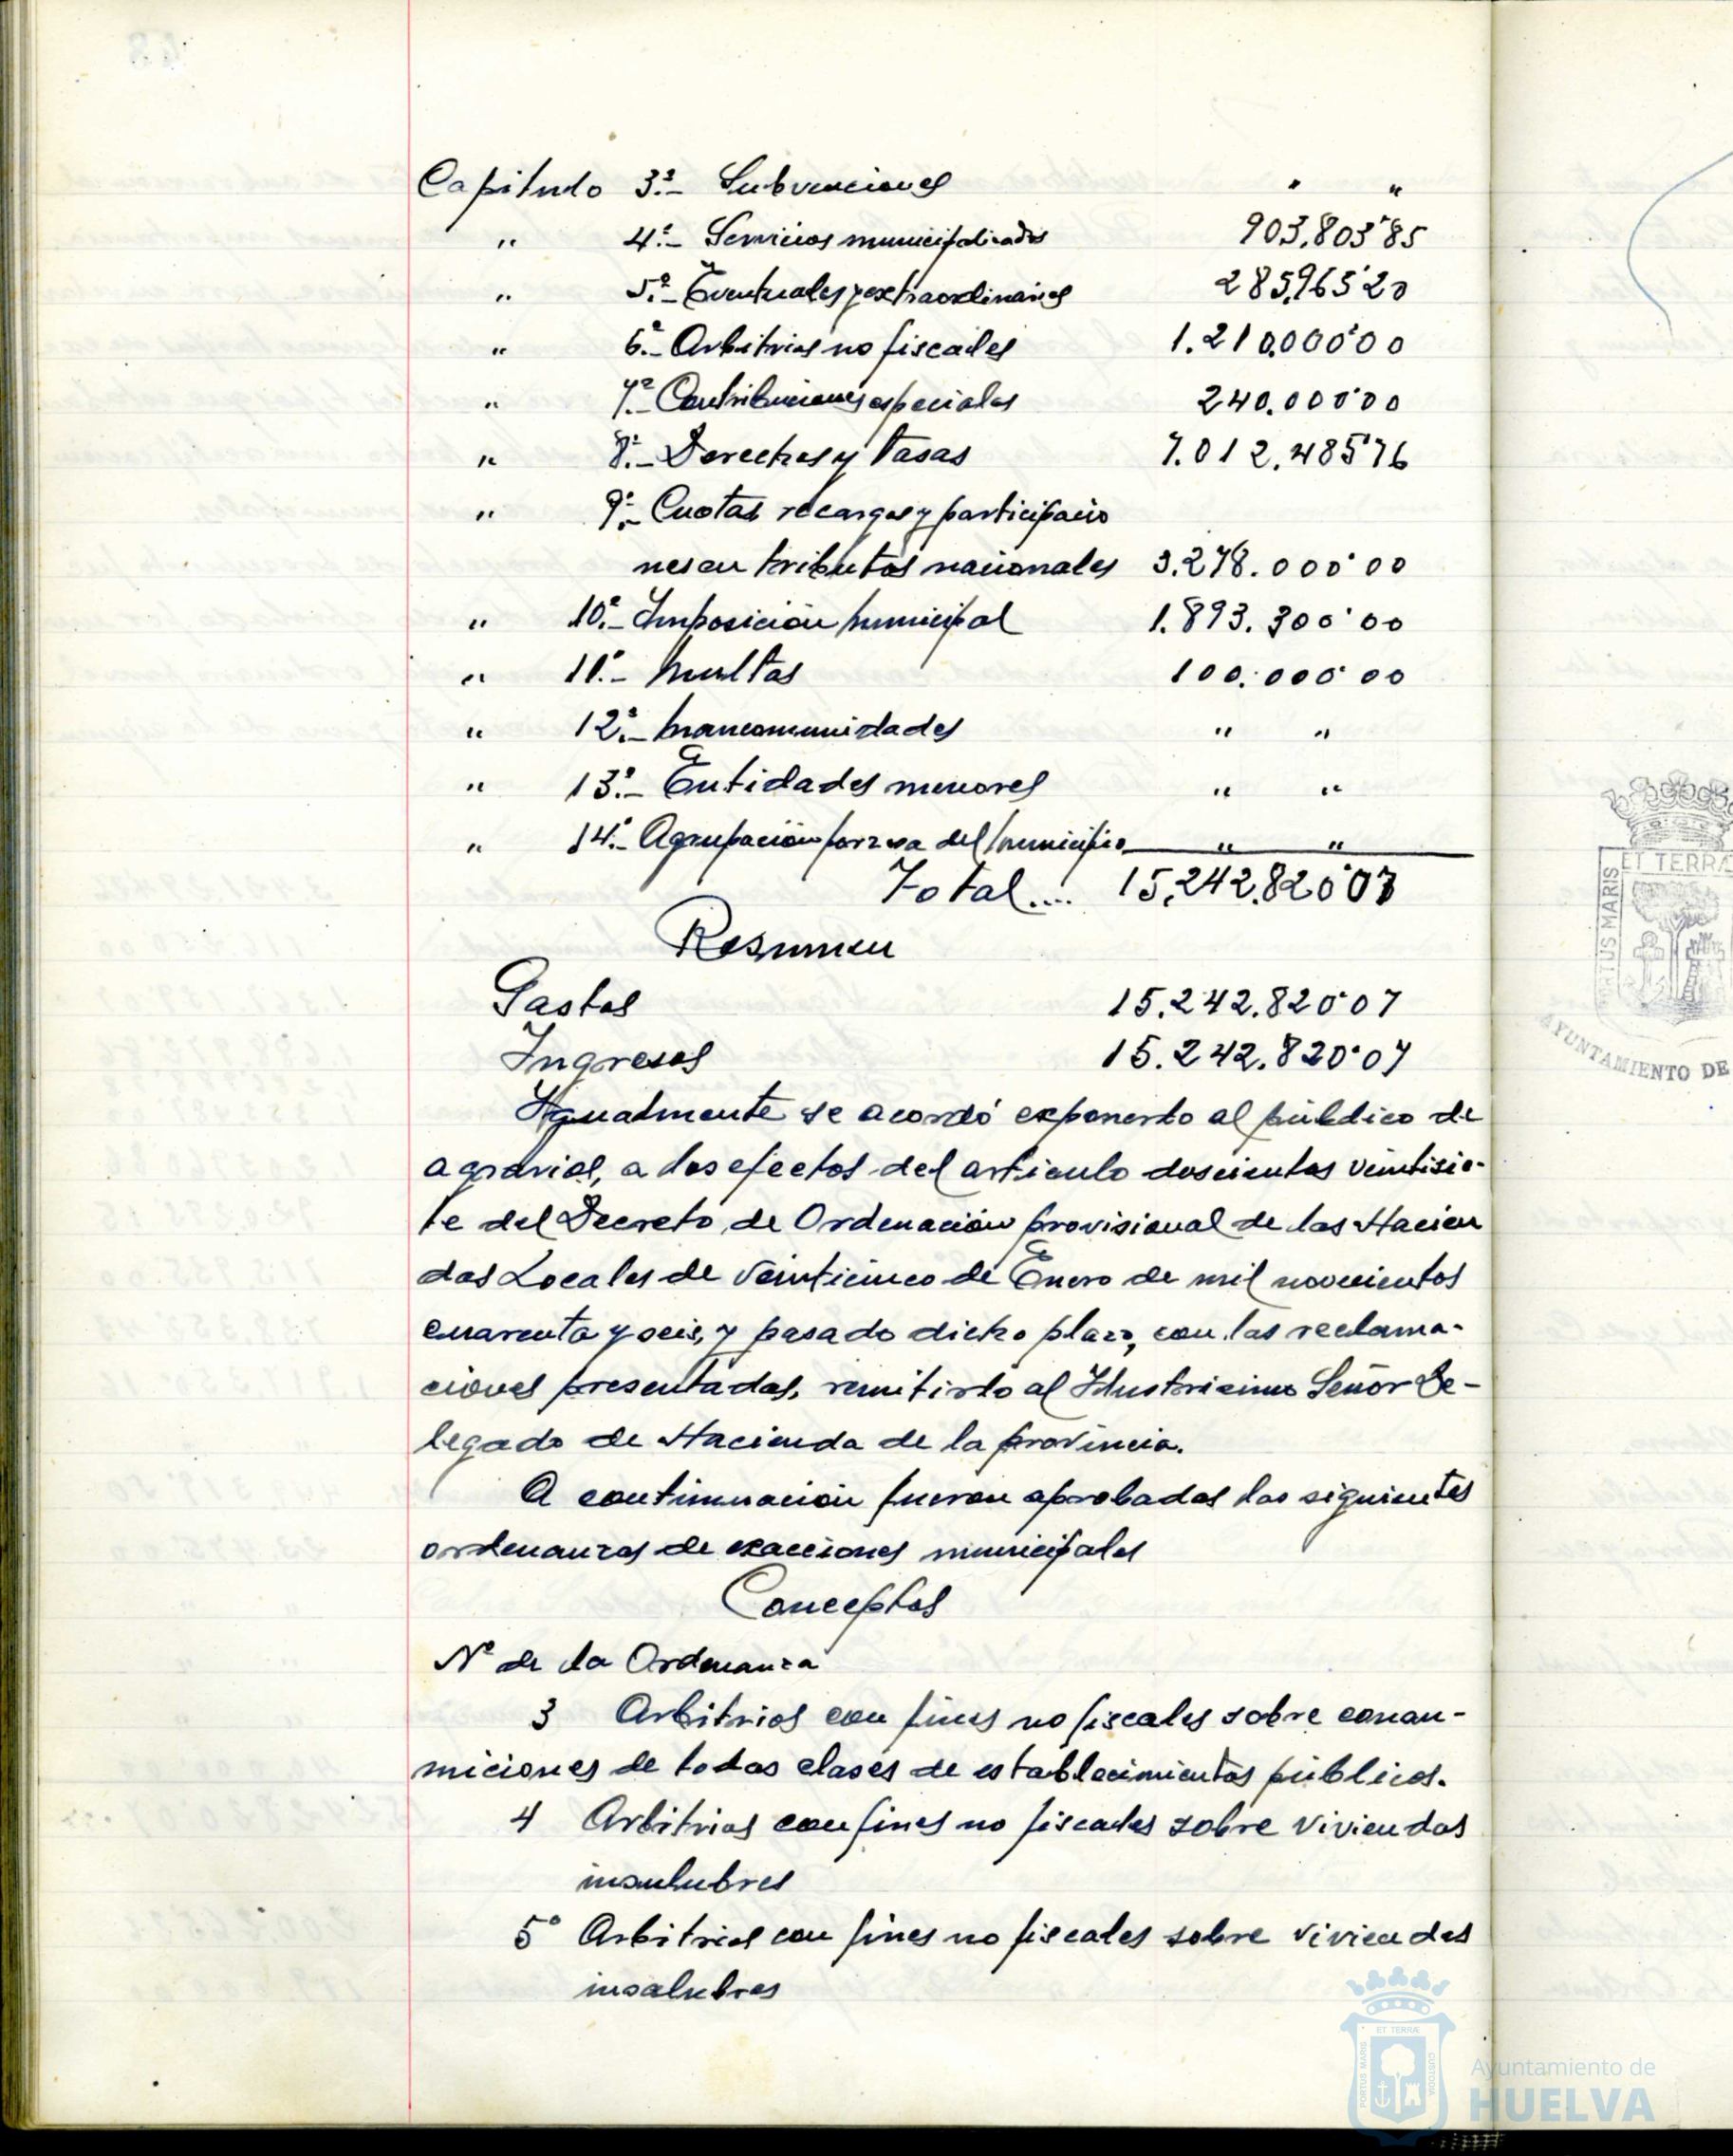 Capitulo 3º.- Subvenciones " "
" 4º.- Servicios municipalizados 903.803'85
" 5º.- Eventuales y extraordinarios 285.965'20
" 6º.- Arbitrios no fiscales 1.210.000'00
" 7º.- Contribuciones especiales 240.000'00
" 8º.- Derechos y tasas 7.012.485'76
" 9º.- Cuotas recargos y participacio
nes en tributos nacionales 3.278.000'00
" 10º.- Imposición municipal 1.893.300'00
" 11º.- Multas 100.000'00
" 12º.- Mancomunidades " "
" 13º.- Entidades menores " "
" 14º.- Agrupación forzosa del municipio " "
Total.... 15.242.820'07
Resumen
Gastos 15.242.820'07
Ingresos 15.242.820'07
Igualmente se acordó exponerlo al público de
agravios, a los efectos del artículo doscientos veintisie-
te del Decreto de Ordenación provisional de las Hacien
das Locales de veinticinco de Enero de mil novecientos
cuarenta y seis, y pasado dicho plazo, con las reclama-
ciones presentadas, remitirlo al Ilustrisimo Señor De-
legado de Hacienda de la provincia.
A continuación fueron aprobadas las siguientes
ordenanzas de exacciones municipales
Conceptos
Nº de la Ordenanza
3 Arbitrios con fines no fiscales sobre consu-
miciones de todas clases de establecimientos públicos.
4 Arbitrios con fines no fiscales sobre viviendas
insalubres
5º Arbitrios con fines no fiscales sobre viviendas
insalubres
ET TERRÆ
PORTUS MARIS
AYUNTAMIENTO DE
ET TERRÆ
PORTUS MARIS
CUSTODIA
Ayuntamiento de
HUELVA